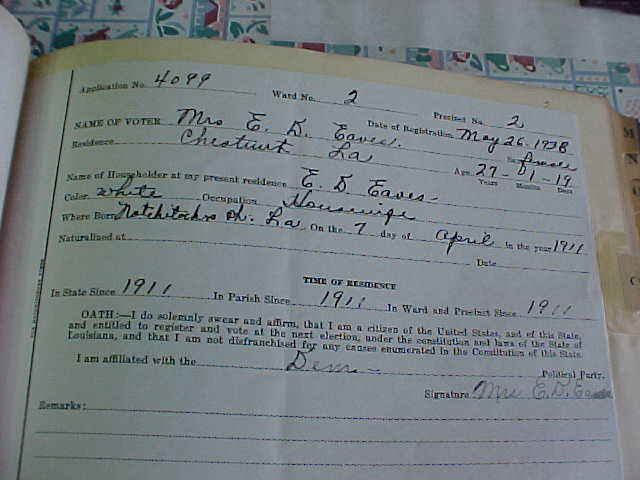 Application No. 4099 Ward No. 2 Precinct No. 2
NAME OF VOTER Mrs E. D. Eaves. Date of Registration May 26, 1938
Residence Chestnut La Sex female
Age 27 - 01 - 19
Years Months Days
Name of Householder at my present residence E. D. Eaves
Color white Occupation Housewife
Where Born Natchitoches Ph. La On the 7 day of April in the year 1911
Naturalized at Date
TIME OF RESIDENCE
In State Since 1911 In Parish Since 1911 In Ward and Precinct Since 1911
OATH:—I do solemnly swear and affirm, that I am a citizen of the United States, and of this State,
and entitled to register and vote at the next election, under the constitution and laws of the State of
Louisiana, and that I am not disfranchised for any causes enumerated in the Constitution of this State.
I am affiliated with the Dem Political Party.
Signature Mrs E. D. Eaves
Remarks: